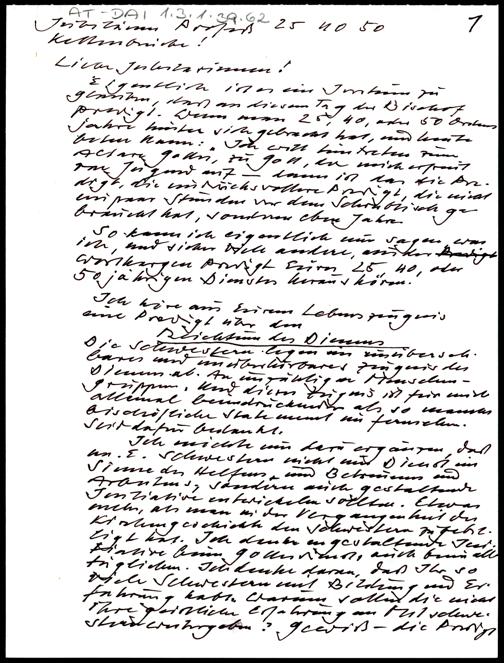 AT-DAI 1.3.1.39.62
Jubiläum Profeß 25 40 50
1
Kettenbrücke!
Liebe Jubilarinnen!
Eigentlich ist es ein Irrtum zu
glauben, daß an diesem Tag der Bischof
predigt. Wenn man 25, 40, oder 50 Ordens
jahre hinter sich gebracht hat, und heute
beten kann: „Ich will hintreten zum
Altare Gottes, zu Gott, der mich erfreut
von Jugend auf – dann ist das die Pre-
digt, die eindrucksvollere Predigt, die nicht
ein paar Stunden vor dem Schreibtisch ge
braucht hat, sondern eben Jahre.
So kann ich eigentlich nur sagen, was
ich, und sicher viele andere, aus der
wortkargen Predigt Eurer 25, 40, oder
50 jährigen Dienstes heraushören.
Ich höre aus Eurem Lebenszeugnis
eine Predigt über den
Reichtum des Dienens
Die Schwestern legen ein unüberseh
bares und unüberhörbares Zeugnis des
Dienens ab. An unzähligen Menschen-
gruppen. Und dieses Zeugnis ist für mich
allemal beeindruckender als so manches
bischöfliche Statement im Fernsehen.
Seid dafür bedankt.
Ich möchte nur dazu ergänzen, daß
m. E. Schwestern nicht nur Dienst im
Sinne des Helfens und Betreuens und
Arbeitens, sondern auch gestaltende
Initiative entwickeln sollten. Etwas
mehr, als man in der Vergangenheit der
Kirchengeschichte den Schwestern zugebil-
ligt hat. Ich denke an gestaltende Initi-
ative beim Gottesdienst, auch beim all
täglichen. Ich denke daran, daß Ihr so
viele Schwestern mit Bildung und Er-
fahrung habt. Warum sollen die nicht
ihre geistliche Erfahrung an Mitschwe-
stern weitergeben? Gewiß – die Predigt